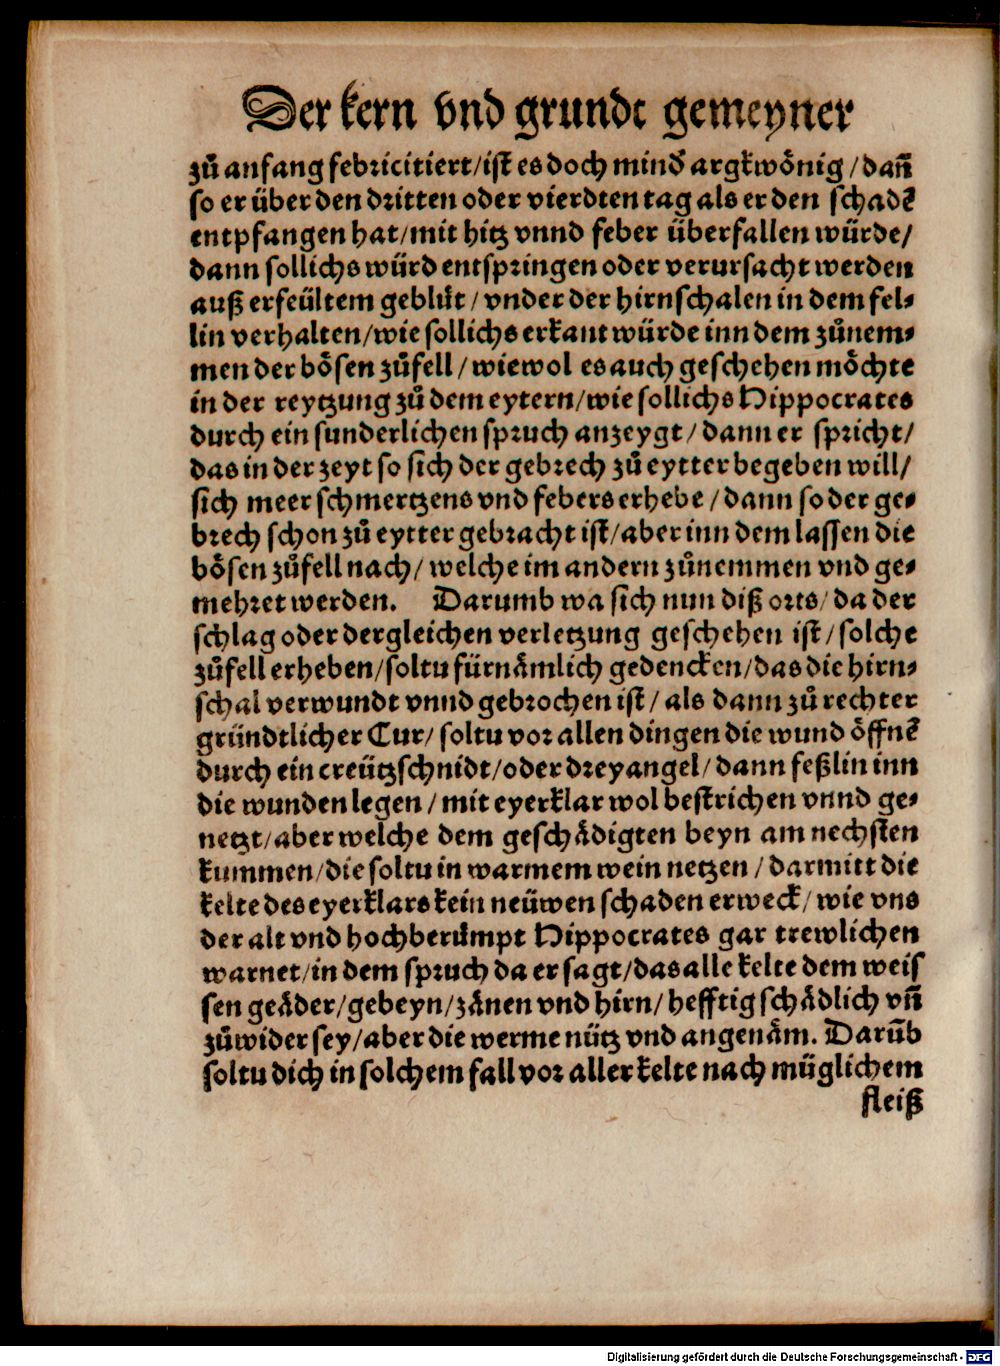 Der kern vnd grundt gemeyner
zů anfang febricitiert/ist es doch mind̕ argkwönig/dañ
so er über den dritten oder vierdten tag als er den schadẽ
entpfangen hat/mit hitz vnnd feber überfallen würde/
dann sollichs würd entspringen oder verursacht werden
auß erfeültem geblůt/vnder der hirnschalen in dem fel-
lin verhalten/wie sollichs erkant würde inn dem zůnem-
men der bösen zůfell/wiewol es auch geschehen möchte
in der reytzung zů dem eytern/wie sollichs Hippocrates
durch ein sunderlichen spruch anzeygt/dann er spricht/
das in der zeyt so sich der gebrech zů eytter begeben will/
sich meer schmertzens vnd febers erhebe/dann so der ge-
brech schon zů eytter gebracht ist/aber inn dem lassen die
bösen zůfell nach/welche im andern zůnemmen vnd ge-
mehret werden. Darumb wa sich nun diß orts/da der
schlag oder dergleichen verletzung geschehen ist/solche
zůfell erheben/soltu fürnämlich gedencken/das die hirn-
schal verwundt vnnd gebrochen ist/als dann zů rechter
gründtlicher Cur/soltu vor allen dingen die wund öffnẽ
durch ein creützschnidt/oder dreyangel/dann feßlin inn
die wunden legen/mit eyerklar wol bestrichen vnnd ge-
netzt/aber welche dem geschädigten beyn am nechsten
kummen/die soltu in warmem wein netzen/darmitt die
kelte des eyerklars kein neüwen schaden erweck/wie vns
der alt vnd hochberümpt Hippocrates gar trewlichen
warnet/in dem spruch da er sagt/das alle kelte dem weis
sen geäder/gebeyn/zänen vnd hirn/hefftig schädlich vñ
zůwider sey/aber die werme nütz vnd angenäm. Darũb
soltu dich in solchem fall vor aller kelte nach müglichem
fleiß
Digitalisierung gefördert durch die Deutsche Forschungsgemeinschaft - DFG